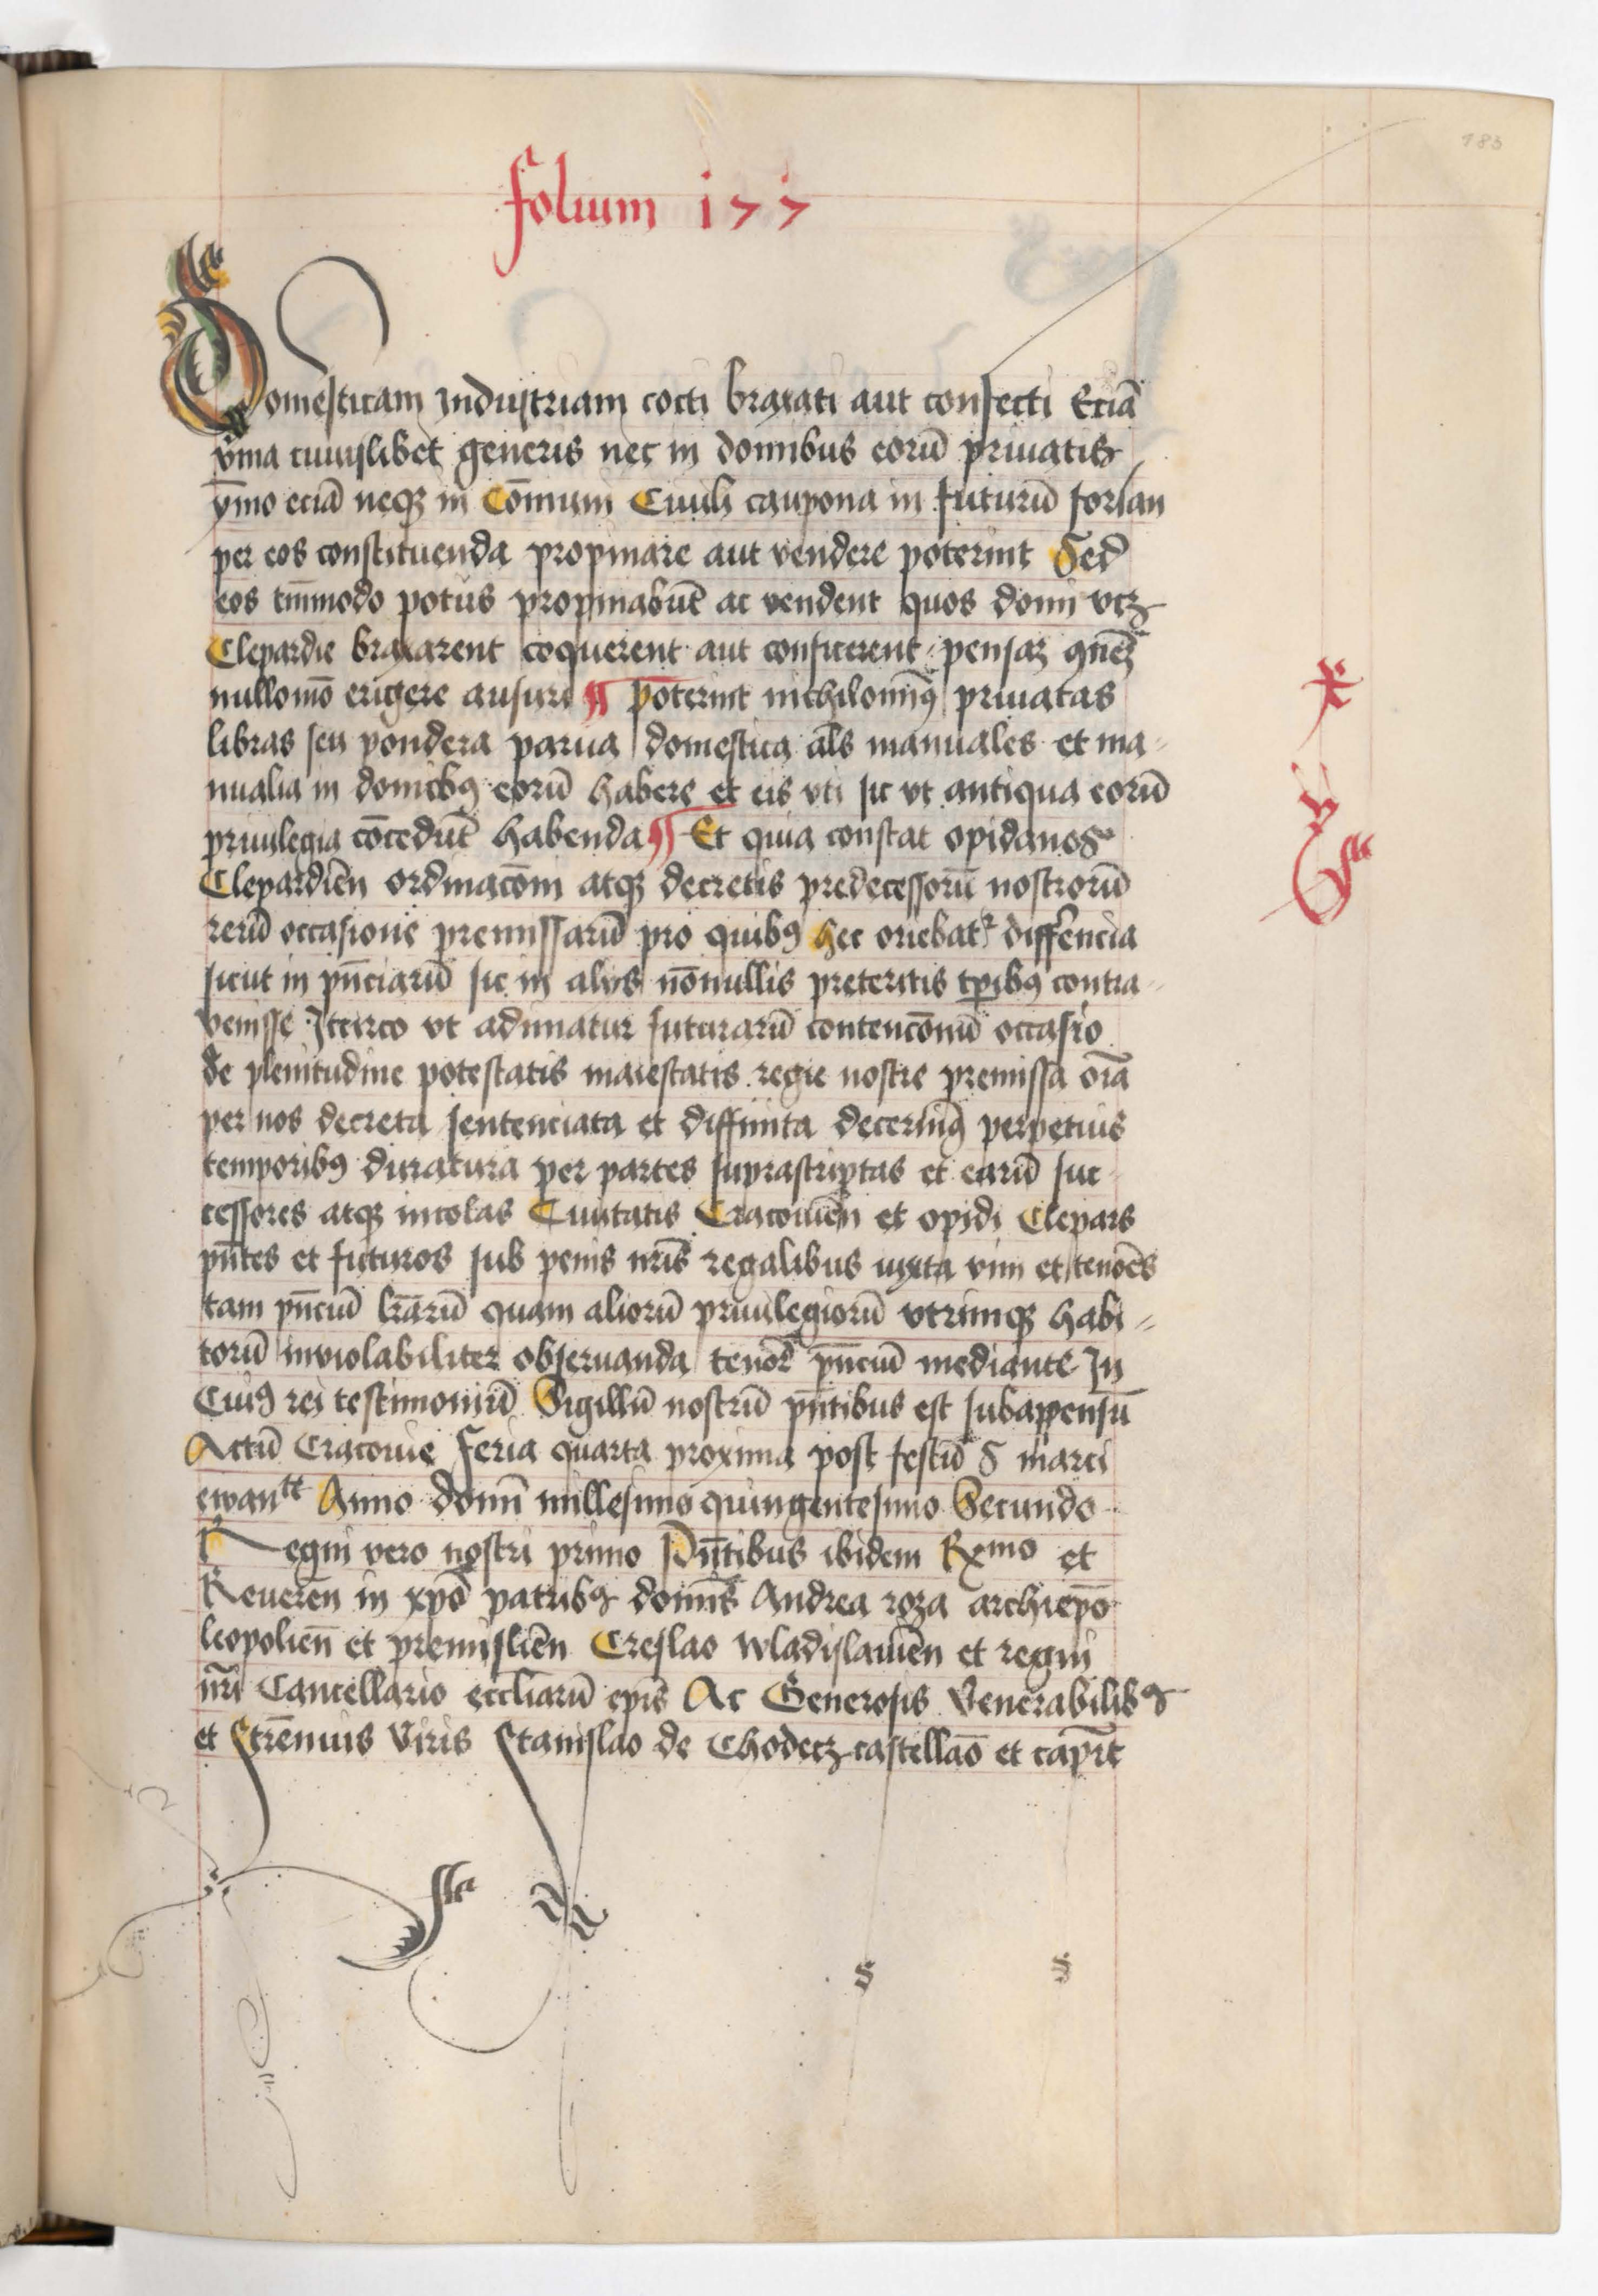 183
folium 177
Domesticam industriam cocti braxati aut confecti Eciā
vina cuiuslibet generis nec in domibus eorū priuatis
ymo eciā neqz in Cōmuni Ciuili caupona in futurū forsan
per eos constituenda propinare aut vendere poterint Sed
eos tm̄modo potus propinabūt ac vendent quos domi vtz
Clepardie braxarent coquerent aut conficerent pensaz
nullomō erigere ausuri ¶ poterint nichilomiꝰ priuatas
libras seu pondera parua domestica als manuales et ma-
nualia in domibꝰ eorū habere et eis vti sic vt antiqua eorū
priuilegia cōcedūt habenda ¶ Et quia constat opidanos
Clepardien̄ ordinacōni atqz decretis predecessorū nostrorū
rerū occasione premissarū pro quibꝰ hec oriebatr differencia
sicut in pn̄ciarū sic in alys nōnullis preteritis tp̄ibꝰ contra-
venisse Iccirco vt adimatur futurarū contencōnū occasio
de plenitudine potestatis maiestatis regie nostre premissa oīa
per nos decreta sentenciata et diffinita decernimꝰ perpetuis
temporibꝰ duratura per partes suprascriptas et earū suc-
cessores atqz incolas Ciuitatis Cracouien̄ et opidi Clepars
pn̄tes et futuros sub penis nr̄is regalibus iuxta vim et tenorēs
tam pn̄ciū lr̄arū quam aliorū priuilegiorū vtrimqz habi-
torū inviolabiliter obseruanda tenorē pn̄ciū mediante In
Cuiꝰ rei testimoniū Sigillū nostrū pn̄tibus est subappensū
Actū Cracouie feria quarta proxima post festū S marci
ewantē Anno domī millesimo quingentesimo Secundo
Regni vero nostri primo Pn̄tibus ibidem Rxmo et
Reueren̄ in xpō patribꝰ domīs Andrea roza archiepō
leopolien̄ et premislien̄ Creslao wladislauien̄ et regni
nr̄i Cancellario eccliarū epīs Ac Generosis Venerabilibꝰ
et Strēnuis Viris Stanislao de Chodecz castellāo et capit